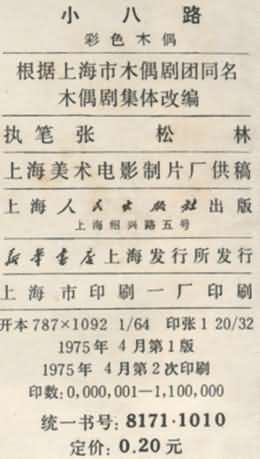 小八路
彩色木偶
根据上海市木偶剧团同名
木偶剧集体改编
执笔张 松 林
上海美术电影制片厂供稿
上海人民出版社出版
上海绍兴路五号
新华书店上海发行所发行
上海市印刷一厂印刷
开本787×1092 1/64 印张1 20/32
1975年 4月第1版
1975年 4月第2次印刷
印数:0,000,001—1,100,000
统一书号: 8171·1010
定价: 0.20 元